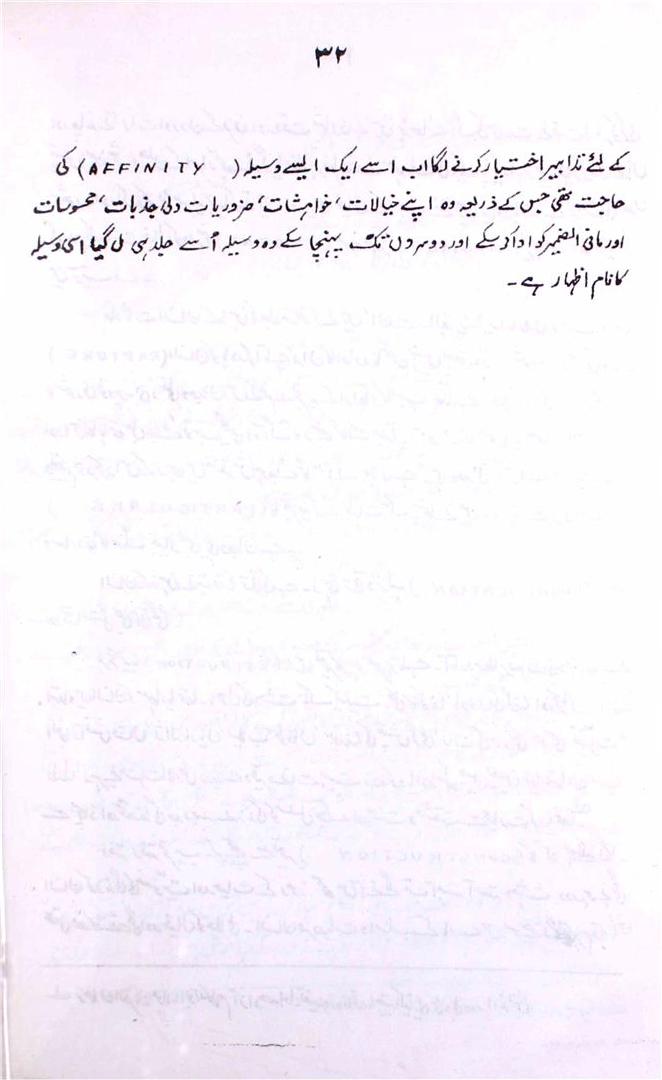 ۳۲
کے لئے تدابیر اختیار کرنے لگا اب اسے ایک ایسے وسیلہ ( AFFINITY) کی
حاجت تھی جس کے ذریعہ وہ اپنے خیالات، خواہشات، ضروریات دلی جذبات، محسوسات
اور مافی الضمیر کو ادا کر سکے اور دوسروں تک پہنچا کے وہ وسیلہ اُسے جلد ہی مل گیا اسی وسیلہ
کا نام اظہار ہے۔